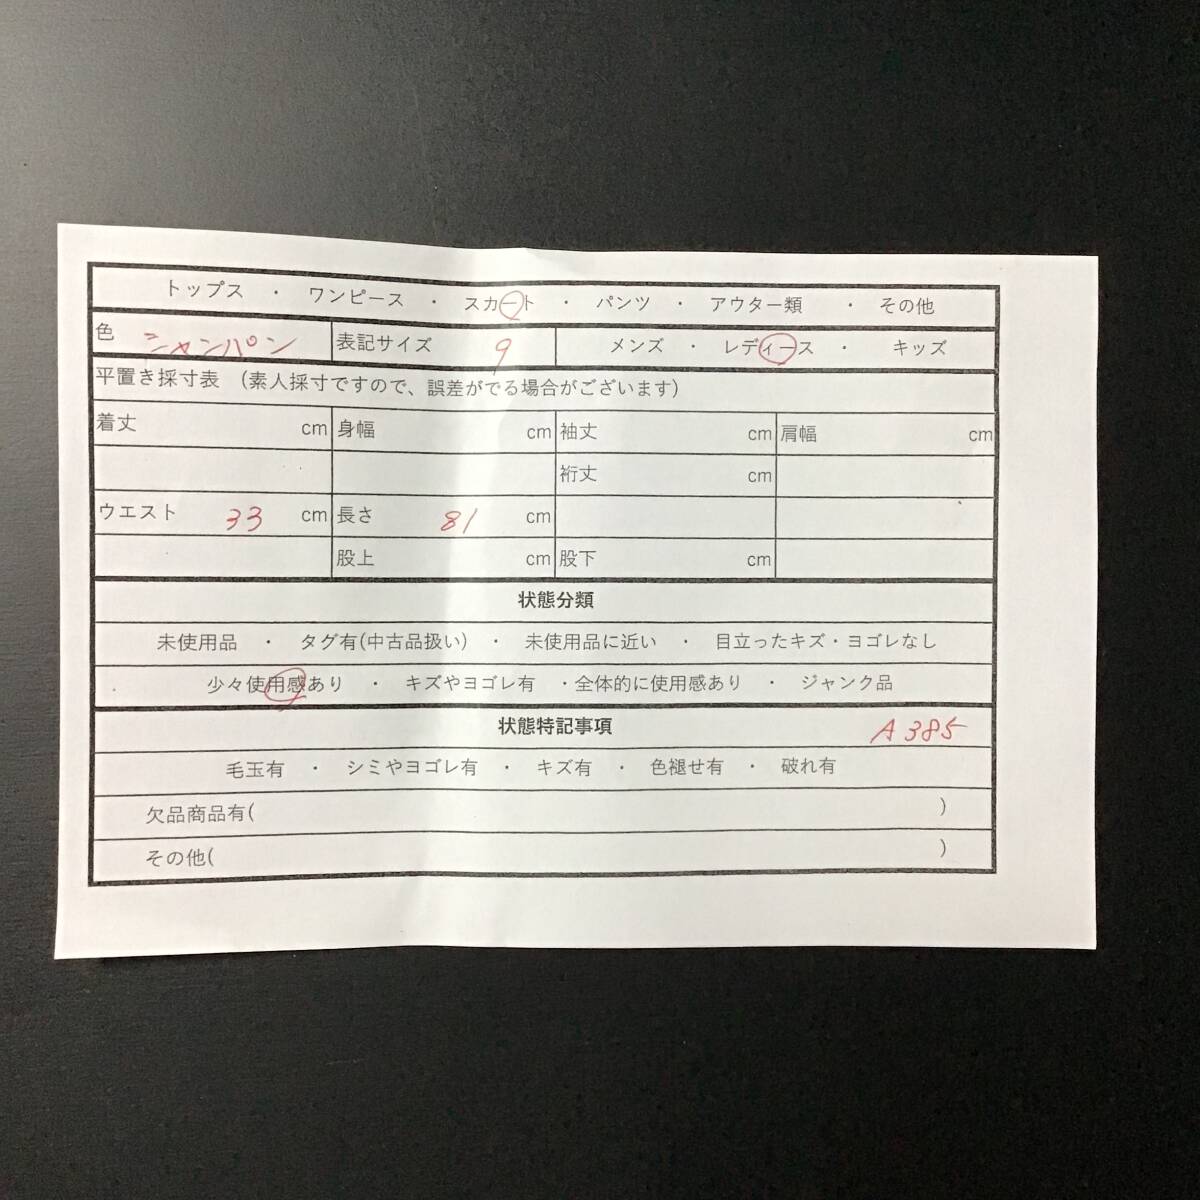 トップス ・ ワンピース ・ スカート ・ パンツ ・ アウター類 ・ その他
色 シャンパン 表記サイズ 9 メンズ ・ レディース ・ キッズ
平置き採寸表 (素人採寸ですので、誤差がでる場合がございます)
着丈 cm 身幅 cm 袖丈 cm 肩幅 cm
裄丈 cm
ウエスト 33 cm 長さ 81 cm
股上 cm 股下 cm
状態分類
未使用品 ・ タグ有(中古品扱い) ・ 未使用品に近い ・ 目立ったキズ・ヨゴレなし
少々使用感あり ・ キズやヨゴレ有 ・全体的に使用感あり ・ ジャンク品
状態特記事項 A385
毛玉有 ・ シミやヨゴレ有 ・ キズ有 ・ 色褪せ有 ・ 破れ有
欠品商品有( )
その他( )